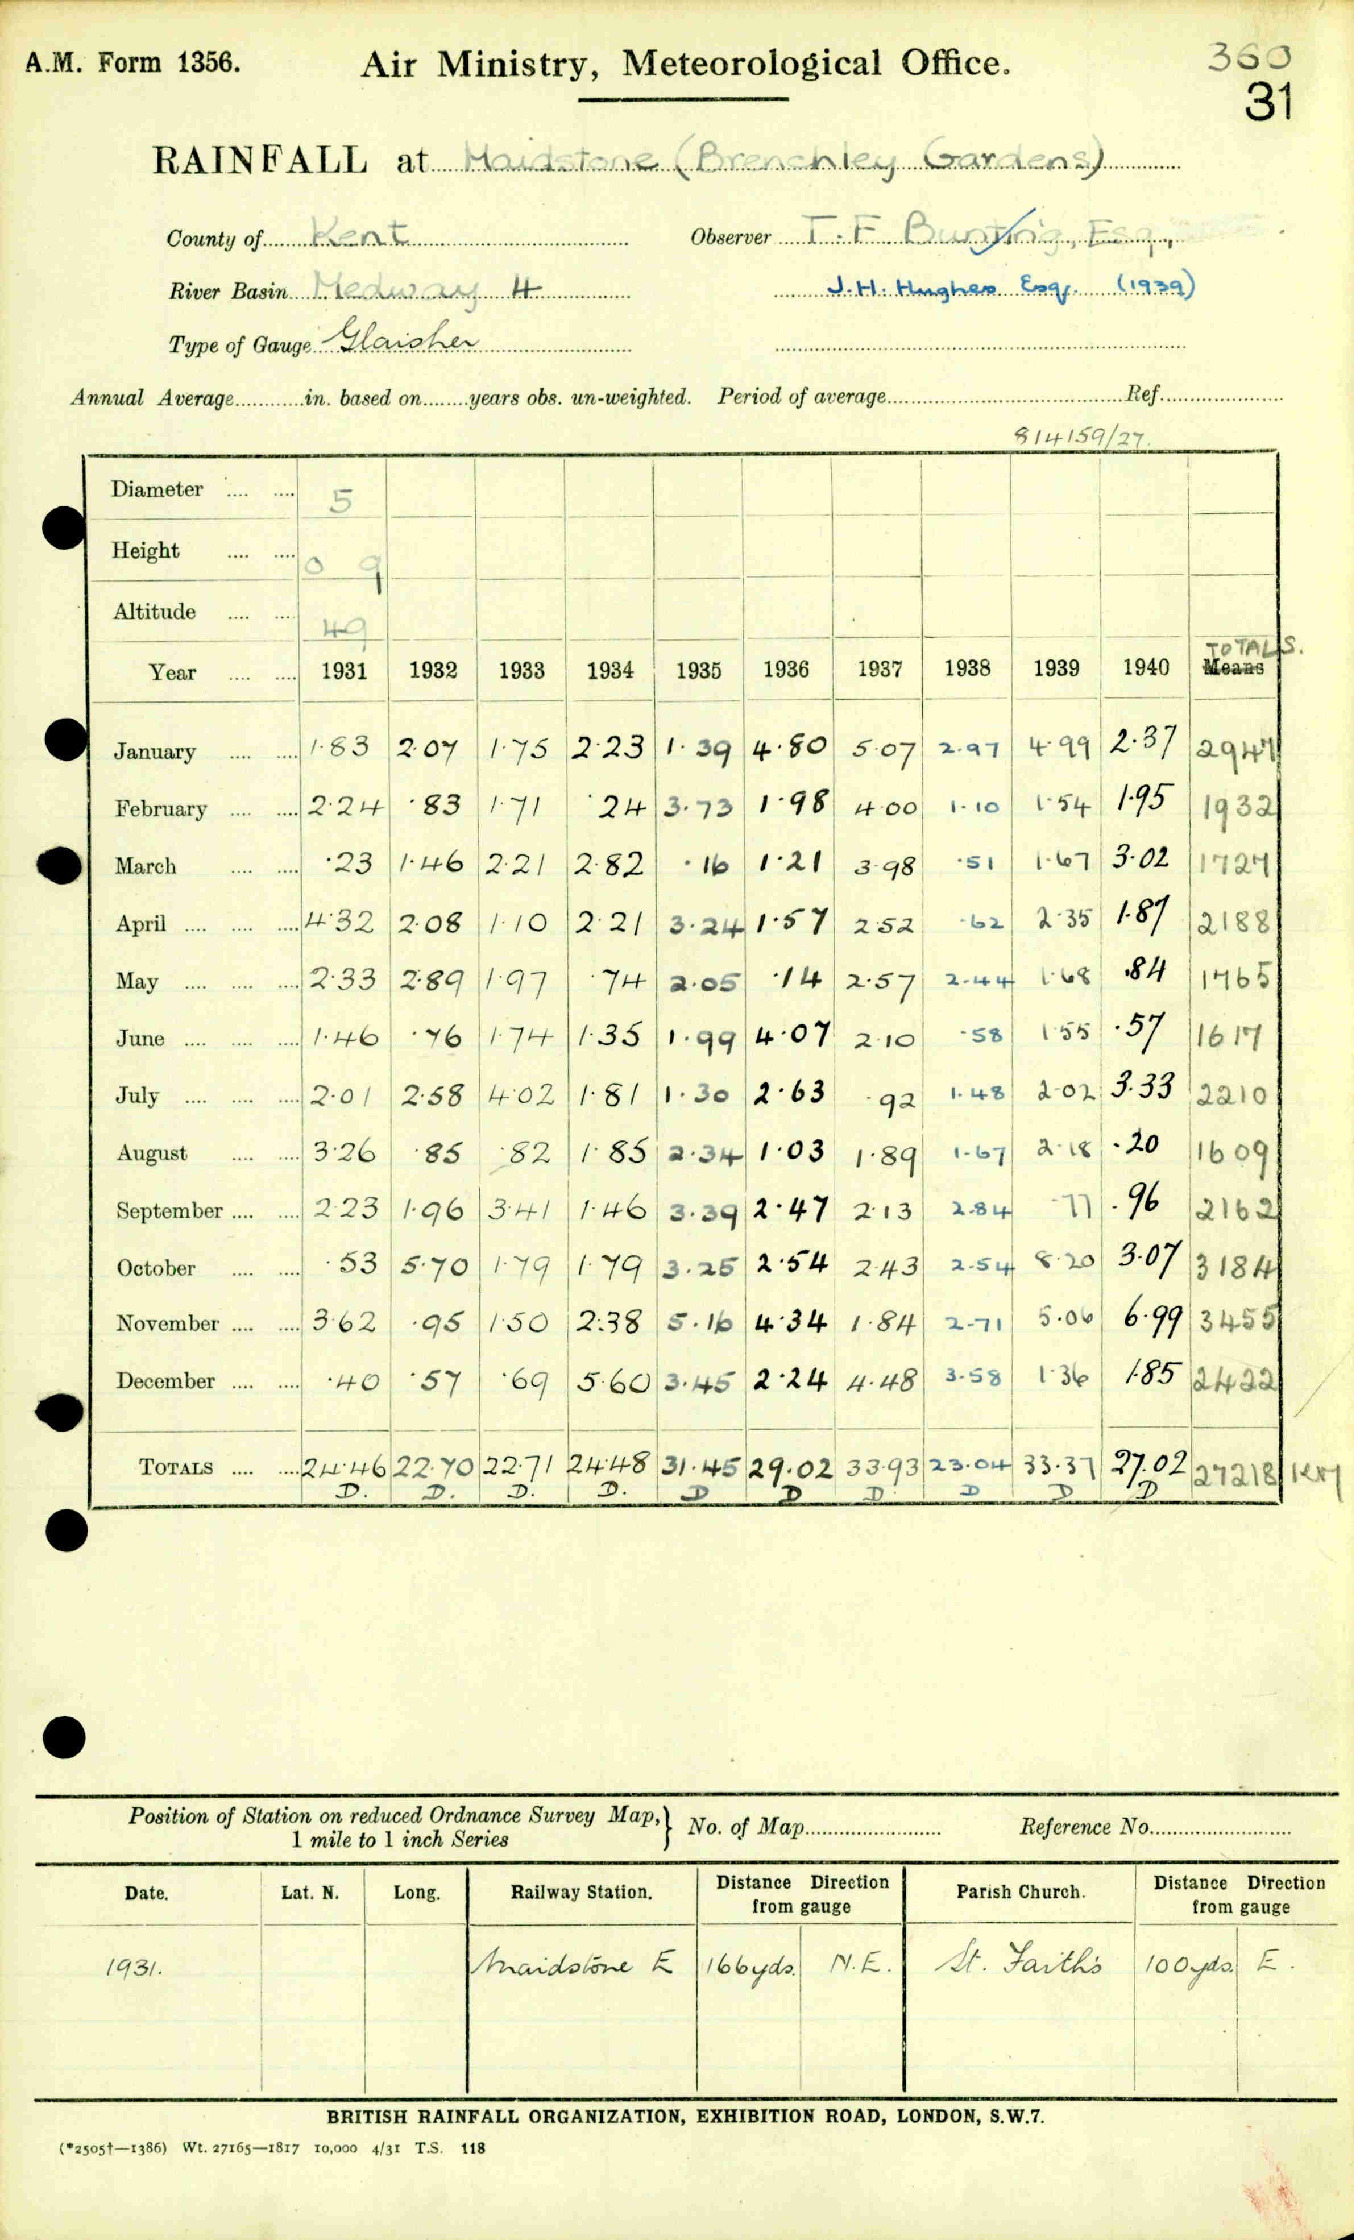 A.M. Form 1356. Air Ministry, Meteorological Office. 360
31
RAINFALL at Maidstone (Brenchley Gardens)
County of Kent Observer T. F Bunting, Esq.,
River Basin Medway 4 J. H. Hughes Esq. (1939)
Type of Gauge Glaisher
Annual Average in. based on years obs. un-weighted. Period of average Ref.
814159/27.
Diameter 5
Height 0 9
Altitude 49
TOTALS.
Year 1931 1932 1933 1934 1935 1936 1937 1938 1939 1940 Means
January 1.83 2.07 1.75 2.23 1.39 4.80 5.07 2.97 4.99 2.37 2947
February 2.24 .83 1.71 .24 3.73 1.98 4.00 1.10 1.54 1.95 1932
March .23 1.46 2.21 2.82 .16 1.21 3.98 .51 1.67 3.02 1727
April 4.32 2.08 1.10 2.21 3.24 1.57 2.52 .62 2.35 1.87 2188
May 2.33 2.89 1.97 .74 2.05 .14 2.57 2.44 1.68 .84 1765
June 1.46 .76 1.74 1.35 1.99 4.07 2.10 .58 1.55 .57 1617
July 2.01 2.58 4.02 1.81 1.30 2.63 .92 1.48 2.02 3.33 2210
August 3.26 .85 .82 1.85 2.34 1.03 1.89 1.67 2.18 .20 1609
September 2.23 1.96 3.41 1.46 3.39 2.47 2.13 2.84 .77 .96 2162
October .53 5.70 1.79 1.79 3.25 2.54 2.43 2.54 8.20 3.07 3184
November 3.62 .95 1.50 2.38 5.16 4.34 1.84 2.71 5.06 6.99 3455
December .40 .57 .69 5.60 3.45 2.24 4.48 3.58 1.36 1.85 2422
TOTALS 24.46 22.70 22.71 24.48 31.45 29.02 33.93 23.04 33.37 27.02 27218
D. D. D. D. D D D D D D
Position of Station on reduced Ordnance Survey Map,
1 mile to 1 inch Series No. of Map Reference No.
Date. Lat. N. Long. Railway Station. Distance Direction from gauge Parish Church. Distance Direction from gauge
1931. Maidstone E 166yds. N.E. St. Faith's 100yds. E.
BRITISH RAINFALL ORGANIZATION, EXHIBITION ROAD, LONDON, S.W.7.
(*2505†—1386) Wt. 27165—1817 10,000 4/31 T.S. 118